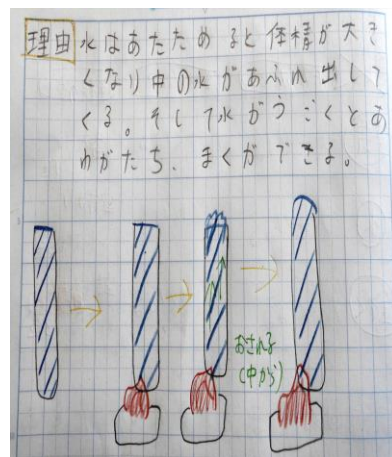 理由 水はあたためると体積が大き
くなり中の水があふれ出して
くる。そして水がうごくとあ
わがたち、まくができる。
おされる
(中から)